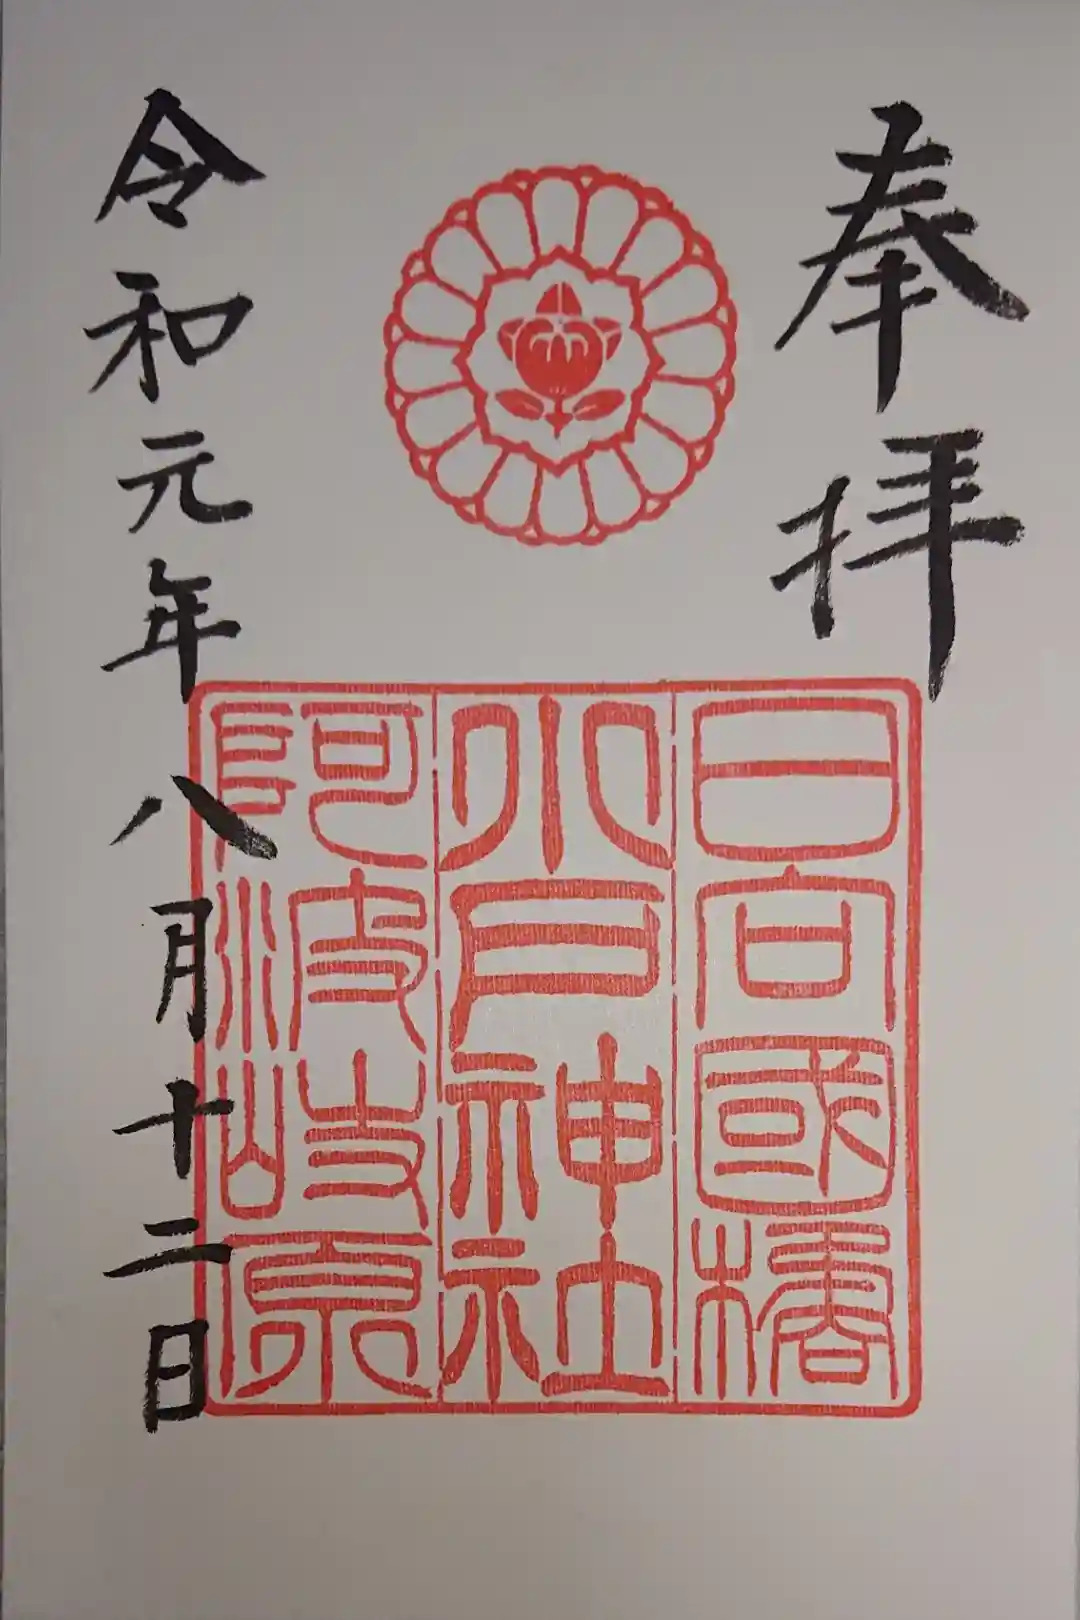 奉拝
日向國橘
小戸神社
阿波岐原
令和元年八月十二日